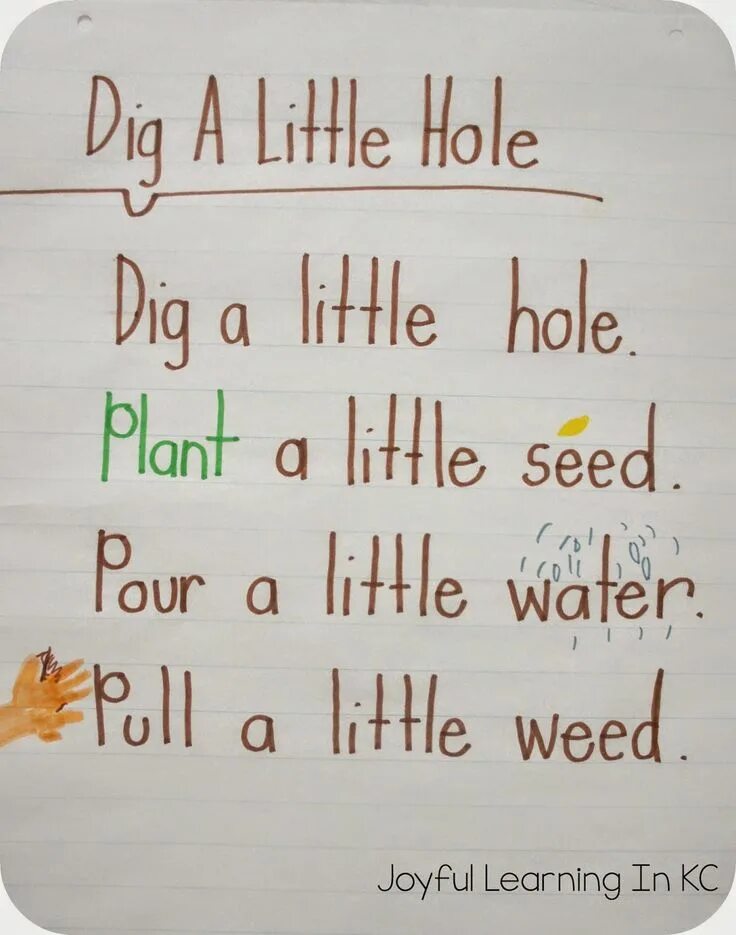 Dig A Little Hole
Dig a little hole.
Plant a little seed.
Pour a little water.
Pull a little weed.
Joyful Learning In KC